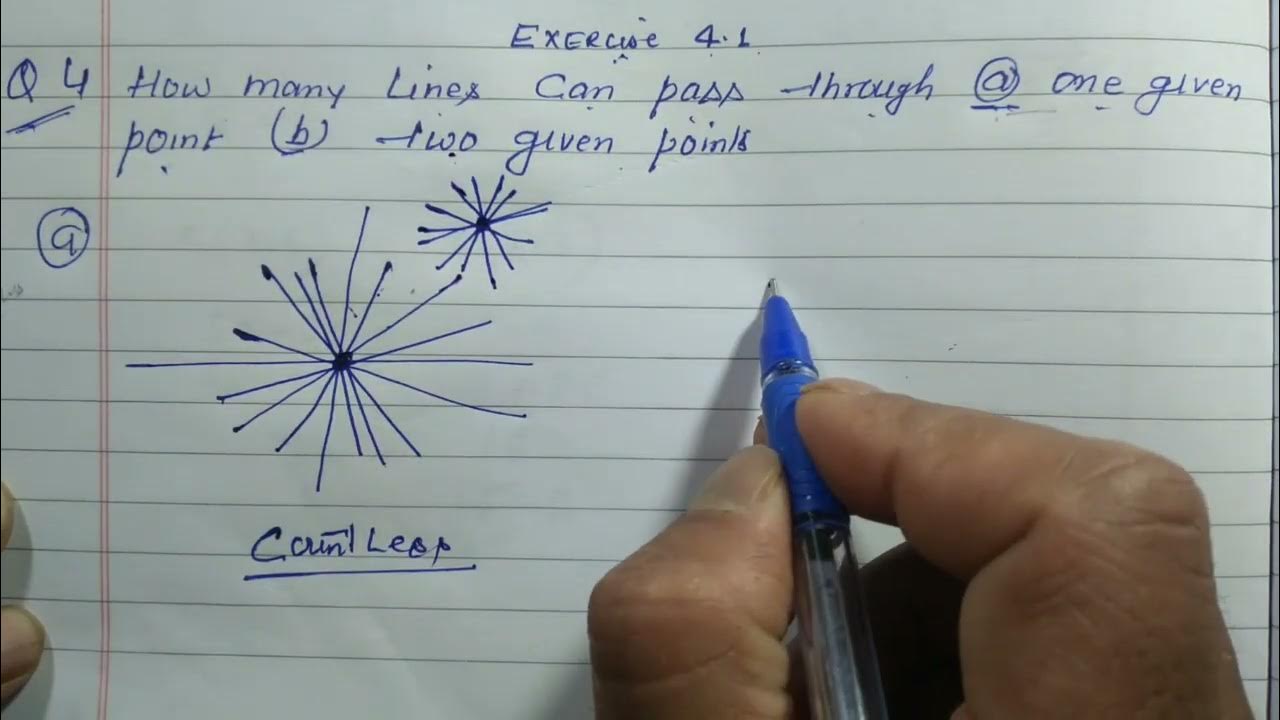 Exercise 4.1
Q 4 How many Lines Can pass through (a) one given
point (b) two given points
(a)
CountLess